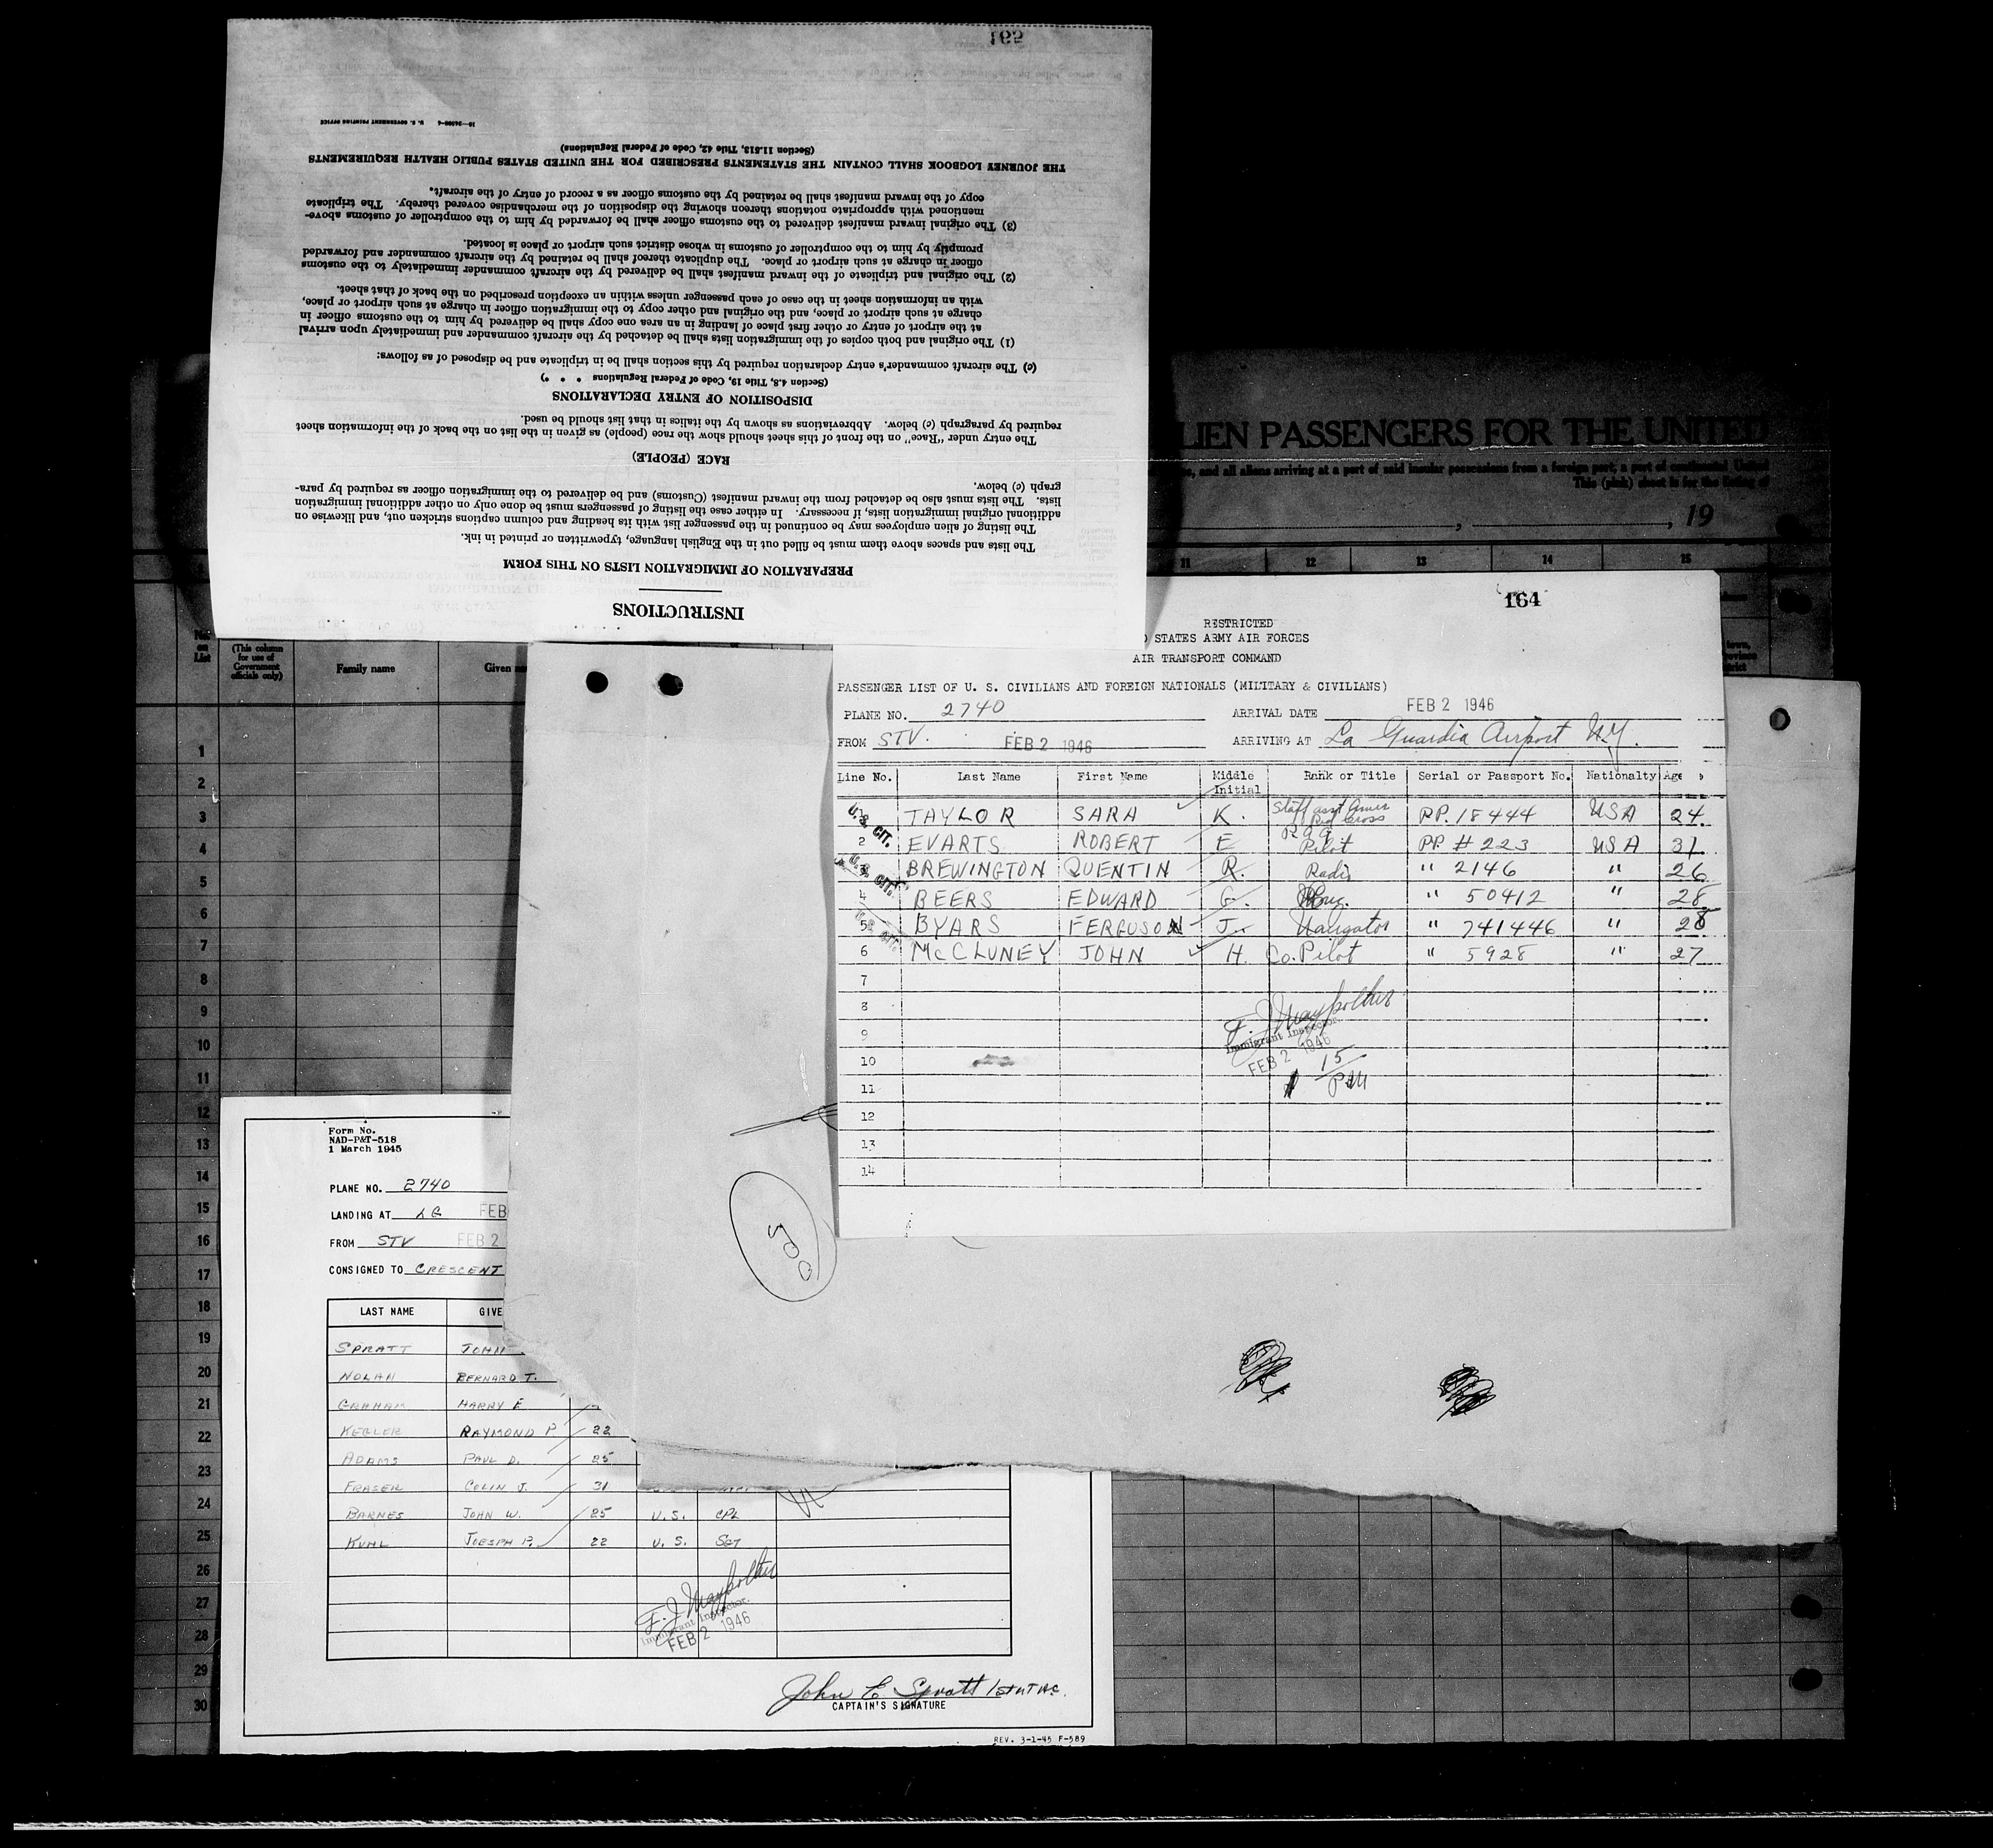 165
INSTRUCTIONS
PREPARATION OF IMMIGRATION LISTS ON THIS FORM
The lists and spaces above them must be filled out in the English language, typewritten or printed in ink.
The listing of alien employees may be continued in the passenger list with its heading and column captions stricken out, and likewise on
additional original immigration lists, if necessary. In either case the listing of passengers must be done only on other additional immigration
lists. The lists must also be detached from the inward manifest (Customs) and be delivered to the immigration officer as required by para-
graph (c) below.
RACE (PEOPLE)
The entry under "Race" on the front of this sheet should show the race (people) as given in the list on the back of the information sheet
required by paragraph (c) below. Abbreviations as shown by the italics in that list should be used.
DISPOSITION OF ENTRY DECLARATIONS
(Section 4.8, Title 19, Code of Federal Regulations * * *)
(c) The aircraft commander's entry declaration required by this section shall be in triplicate and be disposed of as follows:
(1) The original and both copies of the immigration lists shall be detached by the aircraft commander and immediately upon arrival
at the airport of entry or other first place of landing in an area one copy shall be delivered by him to the customs officer in
charge at such airport or place, and the original and other copy to the immigration officer in charge at such airport or place,
with an information sheet in the case of each passenger unless within an exception prescribed on the back of that sheet.
(2) The original and triplicate of the inward manifest shall be delivered by the aircraft commander immediately to the customs
officer in charge at such airport or place. The duplicate thereof shall be retained by the aircraft commander and forwarded
promptly by him to the comptroller of customs in whose district such airport or place is located.
(3) The original inward manifest delivered to the customs officer shall be forwarded by him to the comptroller of customs above-
mentioned with appropriate notations thereon showing the disposition of the merchandise covered thereby. The triplicate
copy of the inward manifest shall be retained by the customs officer as a record of entry of the aircraft.
THE JOURNEY LOGBOOK SHALL CONTAIN THE STATEMENTS PRESCRIBED FOR THE UNITED STATES PUBLIC HEALTH REQUIREMENTS
(Section 11.513, Title 42, Code of Federal Regulations)
U. S. GOVERNMENT PRINTING OFFICE
LIEN PASSENGERS FOR THE UNITED
and all aliens arriving at a port of said insular possessions from a foreign port, a port of continental United
This (pink) sheet is for the listing of
, 19
11 12 13 14 15
No. on List
(This column for use of Government officials only)
Family name
Given
1
2
3
4
5
6
7
8
9
10
11
12
13
14
15
16
17
18
19
20
21
22
23
24
25
26
27
28
29
30
164
RESTRICTED
STATES ARMY AIR FORCES
AIR TRANSPORT COMMAND
PASSENGER LIST OF U. S. CIVILIANS AND FOREIGN NATIONALS (MILITARY & CIVILIANS)
PLANE NO. 2740 ARRIVAL DATE FEB 2 1946
FROM STV. FEB 2 1946 ARRIVING AT La Guardia Airport N.Y.
Line No. Last Name First Name Middle Initial Rank or Title Serial or Passport No. Nationalty Age
U.S. CIT. TAYLOR SARA K. Staff asst Amer Red Cross PP. 18444 USA 24
2 EVARTS ROBERT E Pilot PP # 223 USA 31
U.S. CIT. BREWINGTON QUENTIN R. Radio " 2146 " 26
4 BEERS EDWARD G. Eng. " 50412 " 28
5 BYARS FERGUSON J. Navigator " 741446 " 28
6 McCLUNEY JOHN H. Co. Pilot " 5928 " 27
7
8
9
10
11
12
13
14
Immigrant Inspector.
FEB 2 1946
1 15 PM
500
Form No.
NAD-P&T-518
1 March 1945
PLANE NO. 2740
LANDING AT LG FEB
FROM STV FEB 2
CONSIGNED TO CRESCENT
LAST NAME GIVE
SPRATT JOHN
NOLAN BERNARD T.
GRAHAM HARRY E
KEGLER RAYMOND P. 22
ADAMS PAUL D. 25
FRASER COLIN J. 31
BARNES JOHN W. 25 U.S. CPL
KUHL JOESPH P. 22 U.S. SGT
Immigrant Inspector.
FEB 2 1946
John E Spratt
CAPTAIN'S SIGNATURE
REV. 3-1-45 F-589